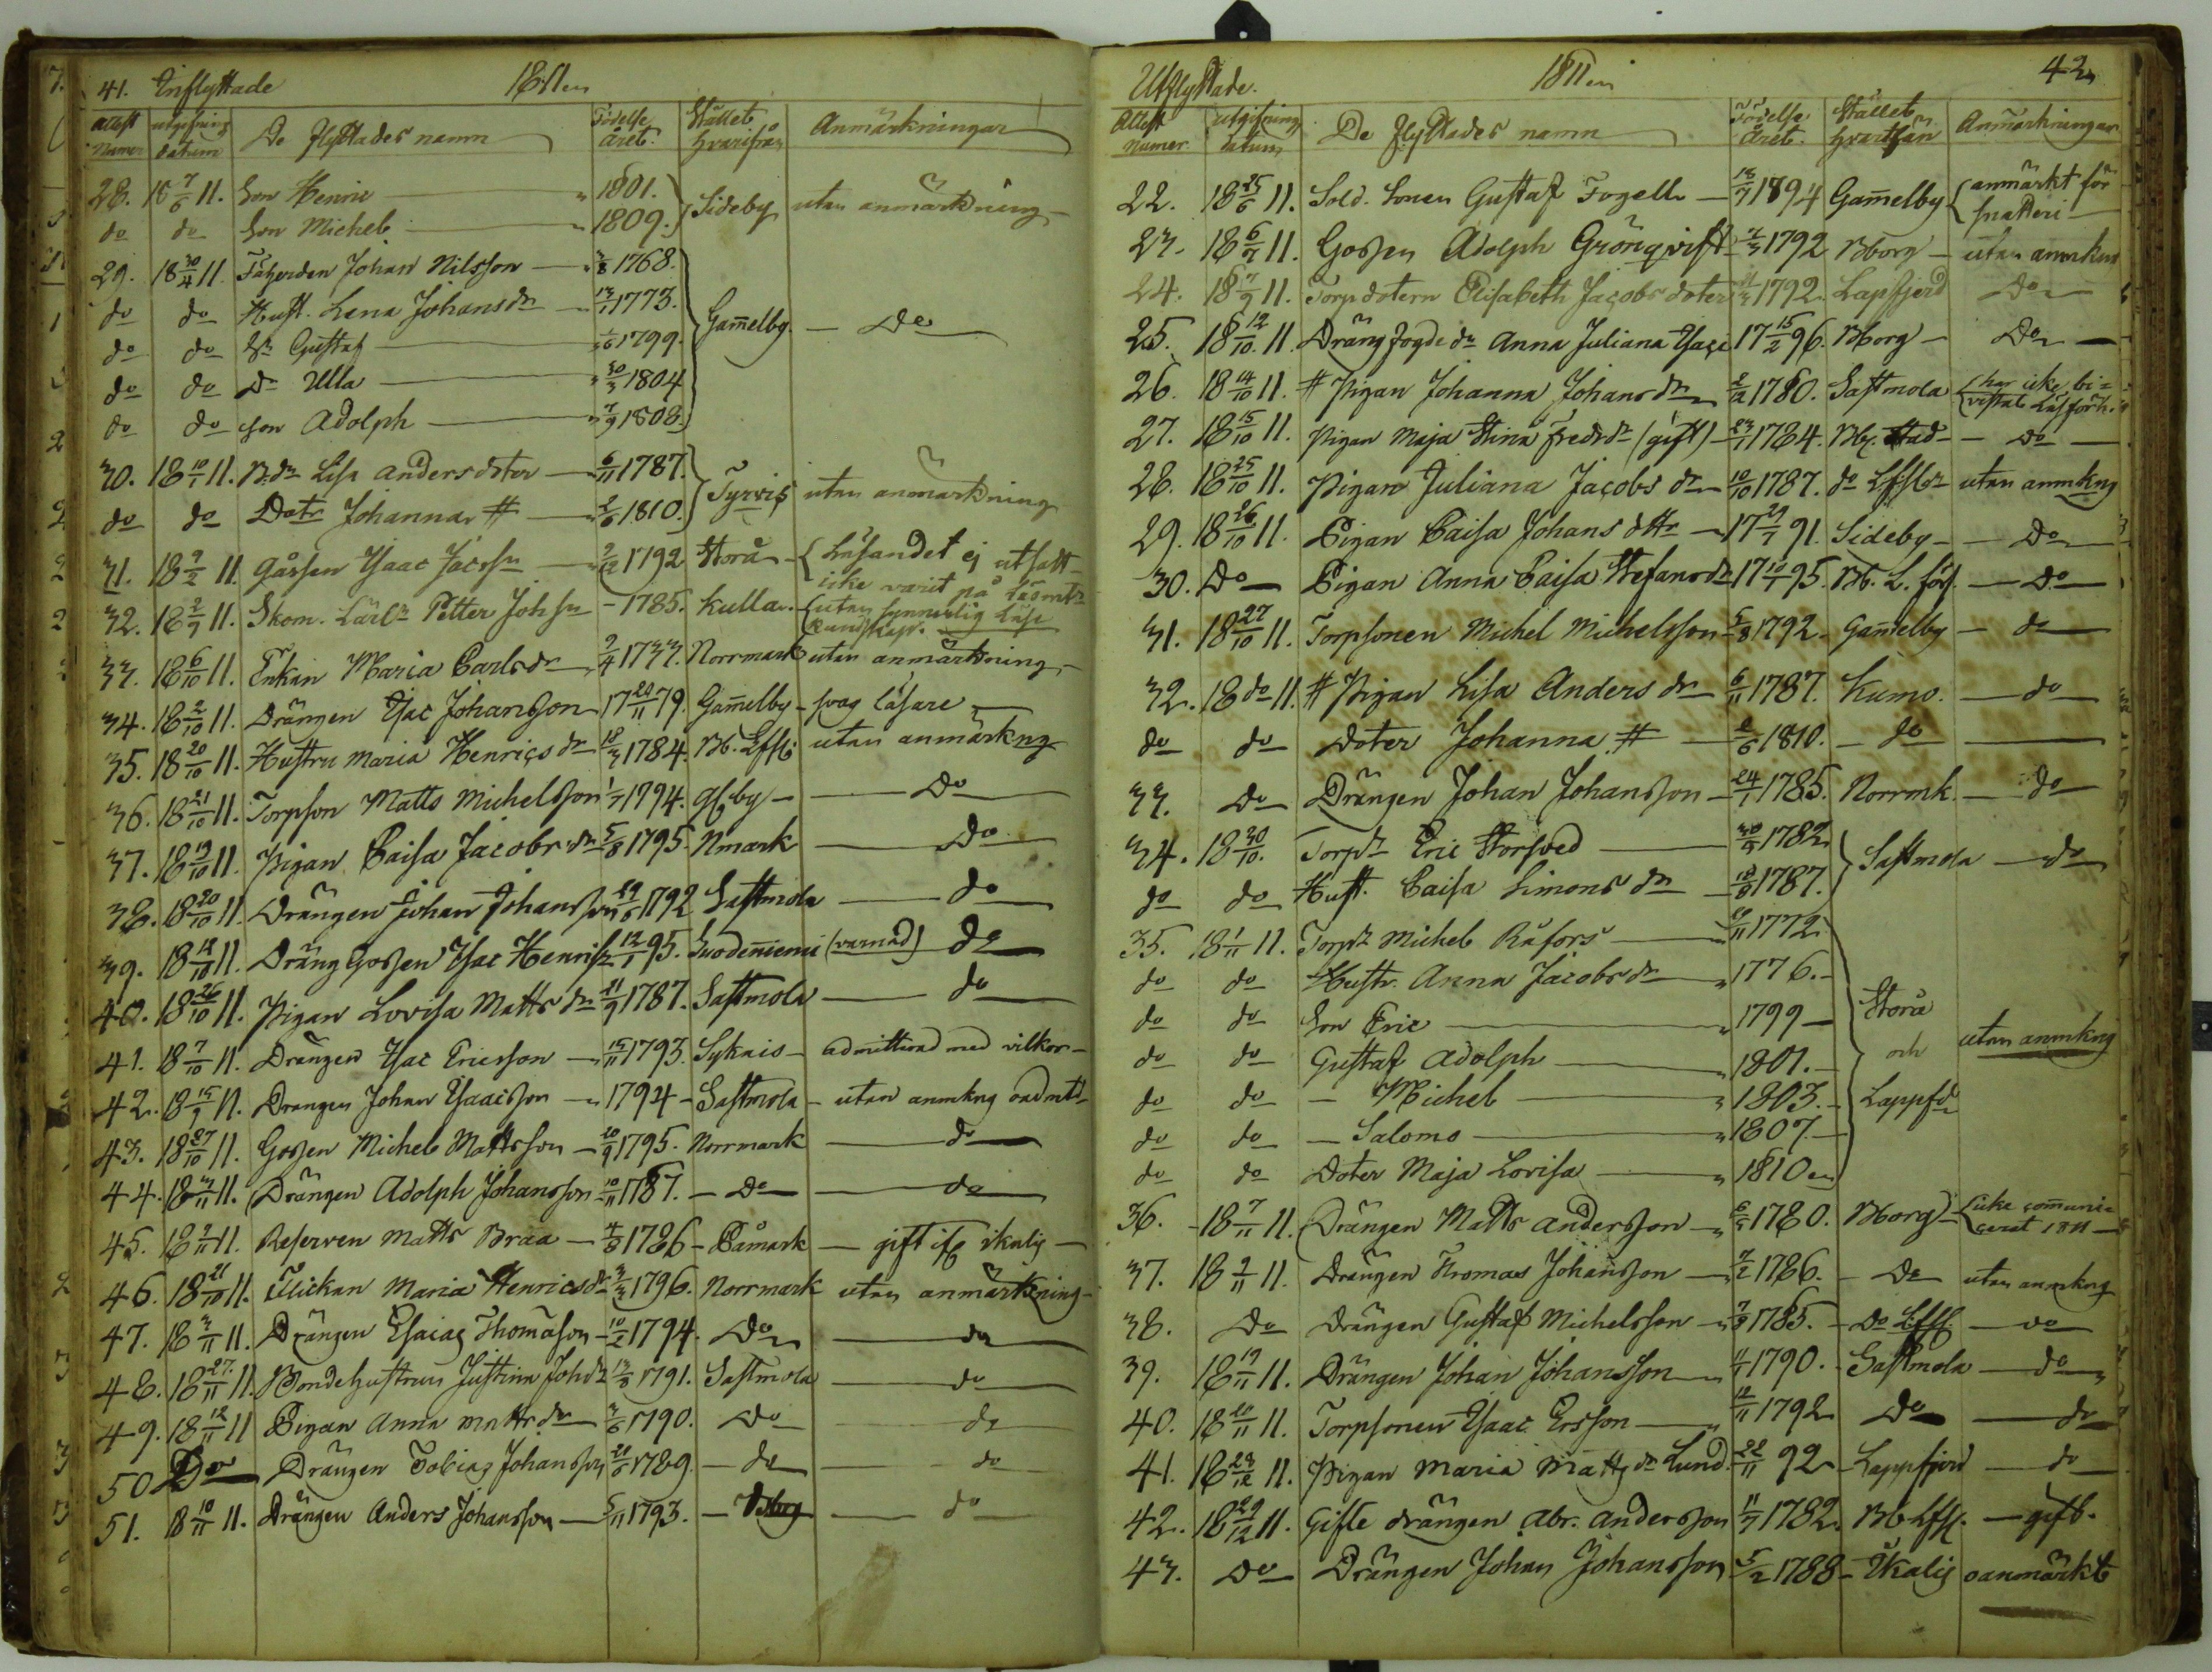 41. Inflyttade 1811
Attest Numer utgifning datum De flyttades namn Födelse Året. Stället hvarifrån Anmärkningar
28. 18 7/6 11. Son Henric 1801. Sideby utan anmärkning
do do Son Michel 1809.
29. 18 30/4 11. Johan Nilsson 3/8 1768.
do do Hust. Lena Johans dr 13/1 1773. Gam̄elby. Do
do do Sn Gustaf 1799.
do do Dr Ulla 30/3 1804
do do son Adolph 7/9 1808.
30. 18 10/1 11. Lisa Andersdoter 6/11 1787. Tyrvis utan anmärkning
do do Dotr Johanna # 2/6 1810.
31. 18 9/2 11. Gåssen Isaac Jacsn 2/12 1792 Storå Läsandet ej utsatt
icke varit på
32. 18 2/9 11. Skom. Lärl. Petter Johsn 1785. Kulla. utan synnerlig Läse
kundskap.
33. 18 6/10 11. Enkan Maria Carlsdr 9/4 1733. Norrmark utan anmärkning
34. 18 2/10 11. Drängen Isac Johansson 17 20/11 79. Gam̄elby svag läsare
35. 18 20/10 11. Hustru Maria Henrics dr 18/3 1784. utan anmärkng
36. 18 21/10 11. Torpson Matts Michelsson 1/7 1794. Do
37. 18 19/10 11. Pigan Caisa Jacobs dr 5/8 1795. Nmark Do
38. 18 20/10 11. Drängen Johan Johansson 29/6 1792 Sastmola do
39. 18 18/10 11. Dräng Gossen Isac Henrics. 12/1 95. Suodeniemi (varnad) do
40. 18 26/10 11. Pigan Lovisa Matts dr 21/9 1787. Sastmola do
41. 18 7/10 11. Drängen Isac Ericsson 15/11 1793. Syknis admitterad med vilkor
42. 18 15/9 11. Drängen Johan Isaacsson 1794 Sastmola utan anmkng
43. 18 27/10 11. Gossen Michel Mattsson 20/9 1795. Norrmark do
44. 18 3/11 11. Drängen Adolph Johansson 10/11 1787. Do do
45. 18 2/11 11. Reserven Matts Braa 4/8 1786 Påmark gift
46. 18 21/10 11. Flickan Maria Henricsdr 3/3 1796. Norrmark utan anmärkning
47. 18 3/11 11. Drängen Esaias Thomason 10/2 1794. Do do
48. 18 27/11 11. Bondehustrun Justina Johdr 13/8 1791. Sastmola do
49. 18 12/11 11 Pigan Anna Matts dr 3/6 1790. Do do
50 Do Drängen Tobias Johansson 21/6 1789. do do
51. 18 10/11 11. Drängen Anders Johansson 5/11 1793. do
Utflyttade. 1811 42
Attest Numer. Utgifning datum De flyttades namn Födelse Året. Stället hvarthän Anmärkningar
22. 18 25/6 11. Sold. Sonen Gustaf Fogell 13/7 1894 Gam̄elby anmärkt för
snatteri
23. 18 6/7 11. Gossen Adolph Grönqvist 2/3 1792 Bborg utan anmkng
24. 18 7/9 11. Torpdotern Elisabeth Jacobs doter 1792. Lapfjerd Do
25. 18 12/10 11. Drängfogde dr Anna Juliana Isacs 17 15/2 96. Bborg Do
26. 18 14/10 11. # Pigan Johanna Johans dr 2/12 1780. Sastmola har icke bi=
vistat Läsförh.
27. 18 15/10 11. Pigan Maja Stina Fredrdr (gift) 23/1 1784. Bbg. Stad do
28. 18 25/10 11. Pigan Juliana Jacobs dr 10/10 1787. do utan anmkng
29. 18 26/10 11. Pigan Caisa Johans dttr 17 29/7 91. Sideby Do
30. Do Pigan Anna Caisa Stefansdr 17 10/1 95. Do
31. 18 27/10 11. Torpsonen Michel Michelsson 5/8 1792. Gam̄elby do
32. 18 do 11. # Pigan Lisa Anders dr 6/11 1787. Kumo. do
do do Doter Johanna # 2/6 1810. do
33. Do Drängen Johan Johansson 24/1 1785. Norrmk. do
34. 18 30/10. Torpr Eric Storsved 1782 Sastmola do
do do Hust. Caisa Simons dr 18/9 1787.
35. 18 1/11 11. Torpr Michel Råfors 1772
do do Hustr. Anna Jacobsdr 1776.
do do Son Eric 1799 Storå
do do Gustaf Adolph 1801. och utan anmkng
do do Michel 1803. Lappfd
do do Salomo 1807.
do do Doter Maja Lovisa 1810
36. 18 7/11 11. Drängen Matts Andersson 1780. Bborg icke com̄uni=
cerat 1811
37. 18 9/11 11. Drängen Thomas Johansson 2/2 1786. Do utan anmkng
38. Do Drängen Gustaf Michelsson 7/9 1785. Do do
39. 18 19/11 11. Drängen Johan Johansson 1790. Sastmola do
40. 18 20/11 11. Torpsonen Isaac Ersson 12/11 1792 Do do
41. 18 23/12 11. Pigan Maria Matts dr Lund. 22/11 92 Lappfjerd do
42. 18 29/12 11. Gifte drängen Abr. Andersson 11/7 1782. gift.
43. Do Drängen Johan Johansson 5/2 1788 Ikalis oanmärkt